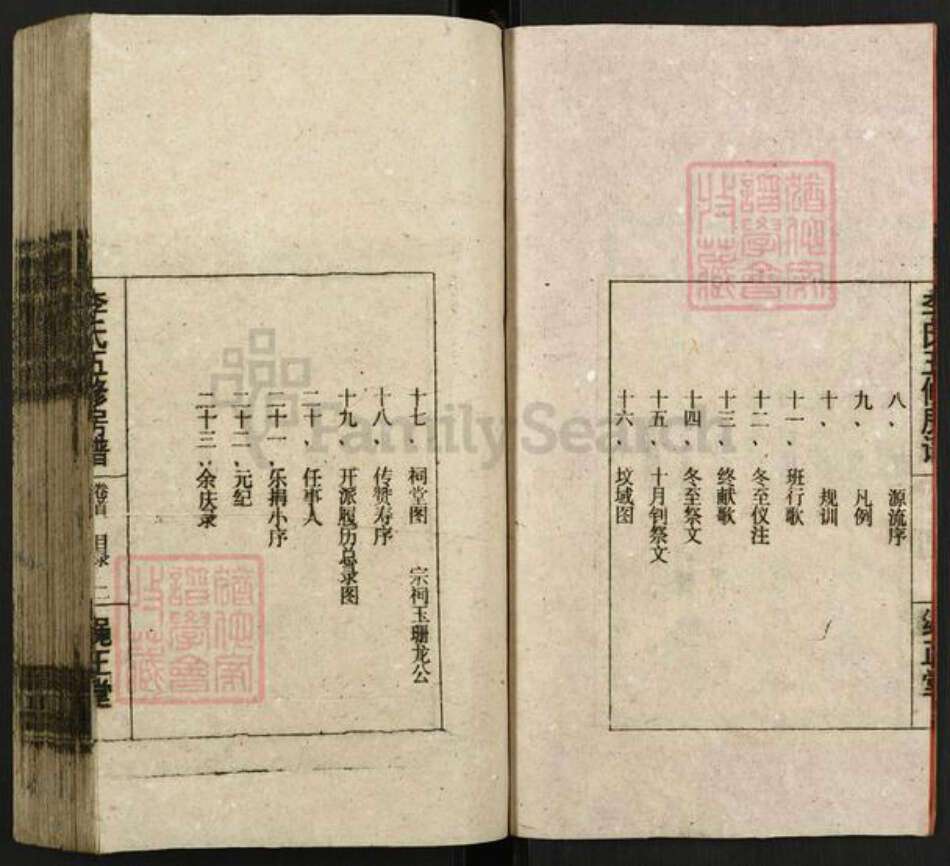 八、 源流序
九、 凡例
十、 规训
十一、班行歌
十二、冬至仪注
十三、终献歌
十四、冬至祭文
十五、十月钊祭文
十六、坟域图
十七、祠堂图 宗祠玉珊龙公
十八、传赞寿序
十九、开派履历总录图
二十、任事人
二十一、乐捐小序
二十二、元纪
二十三、余庆录
李氏五修房谱
卷首 目录 二
绳正堂
FamilySearch